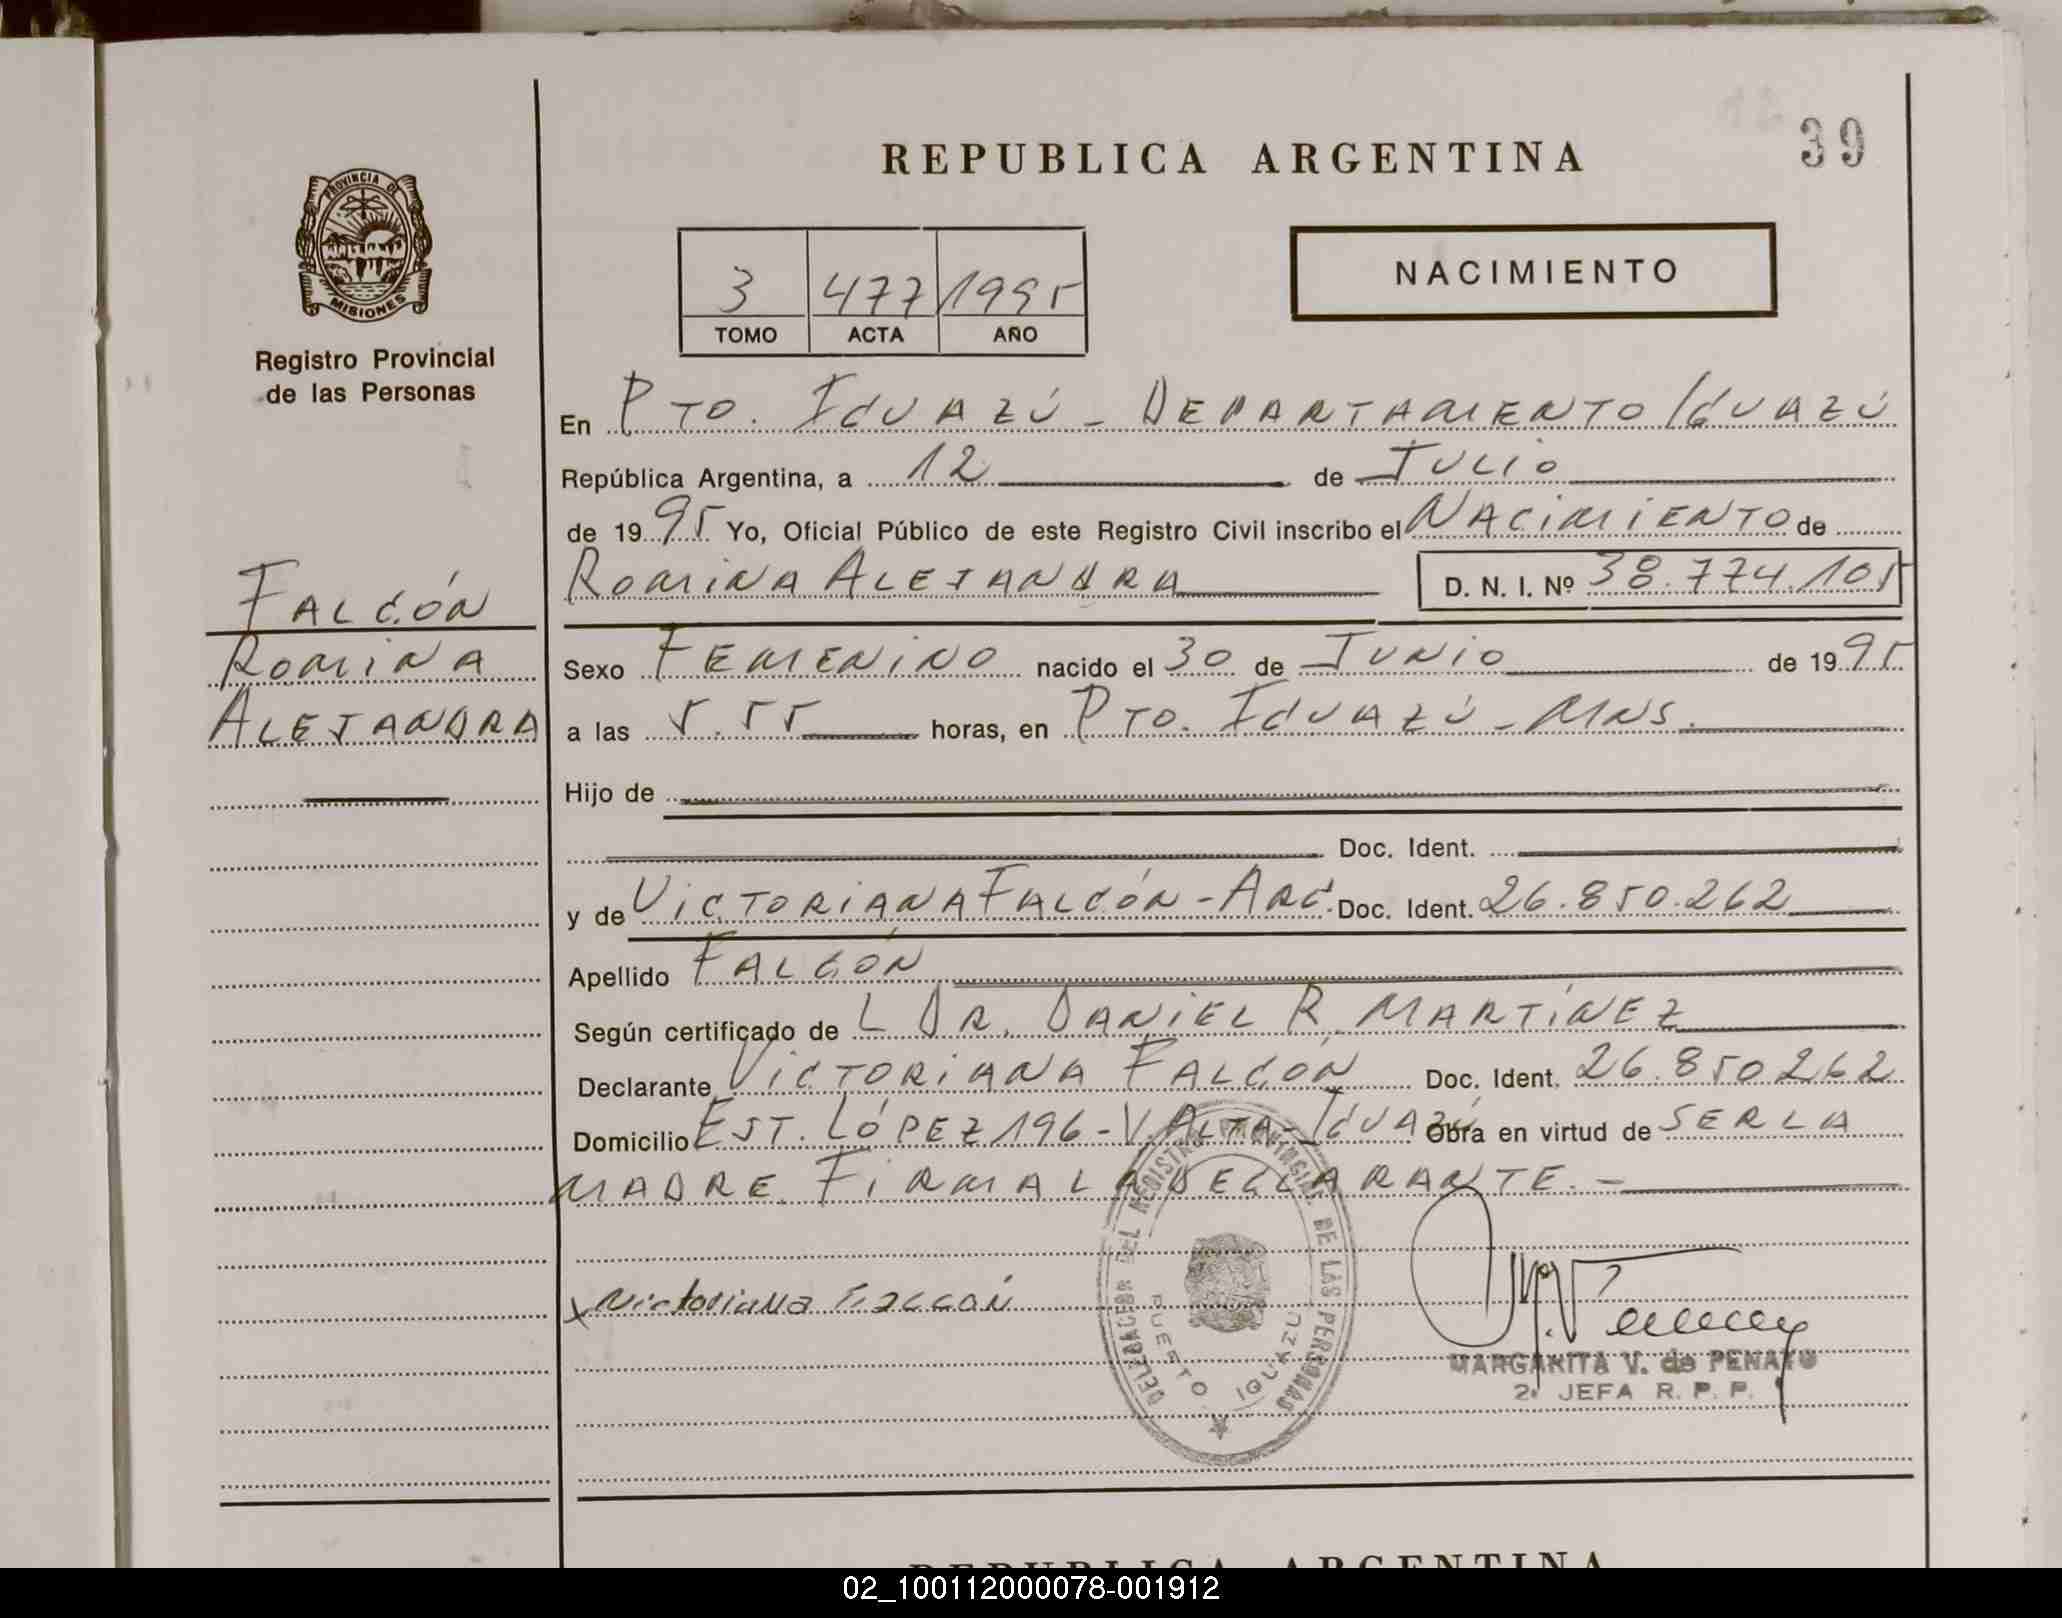 REPUBLICA ARGENTINA
39
PROVINCIA DE
MISIONES
Registro Provincial
de las Personas
3 477 1995
TOMO ACTA AÑO
NACIMIENTO
En PTO. IGUAZÚ - DEPARTAMENTO IGUAZÚ
República Argentina, a 12 de JULIO
de 1995 Yo, Oficial Público de este Registro Civil inscribo el NACIMIENTO de
ROMINA ALEJANDRA D. N. I. Nº 38.774.105
FALCÓN
ROMINA
ALEJANDRA
Sexo FEMENINO nacido el 30 de JUNIO de 1995
a las 5.55 horas, en PTO. IGUAZÚ - MNS.
Hijo de
Doc. Ident.
y de VICTORIANA FALCÓN - ARG. Doc. Ident. 26.850.262
Apellido FALCÓN
Según certificado de L DR. DANIEL R. MARTÍNEZ
Declarante VICTORIANA FALCÓN Doc. Ident. 26.850262
Domicilio EST. LÓPEZ 196 - V. ALTA - IGUAZÚ Obra en virtud de SER LA
MADRE. FIRMA LA DECLARANTE. -
DELEGACION DEL REGISTRO PROVINCIAL DE LAS PERSONAS
PUERTO IGUAZU
x Victoriana Falcón
MARGARITA V. de PENAYO
2ª JEFA R. P. P.
REPUBLICA ARGENTINA
02_100112000078-001912